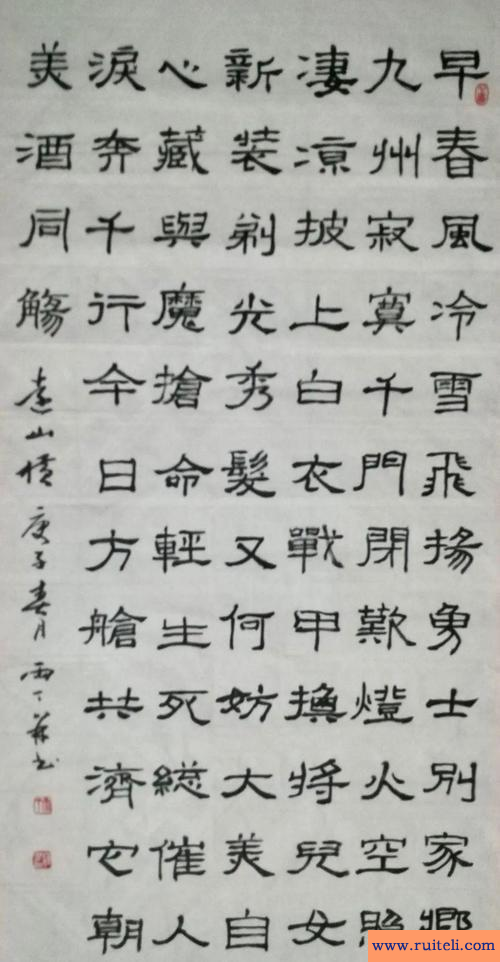 早春風冷雪飛揚勇士別家鄉
九州寂寞千門閉歎燈火空照
凄凉披上白衣戰甲換將兒女
新裝剃光秀髮又何妨大美自
心藏與魔搶命輕生死總催人
淚奔千行今日方艙共濟它朝
美酒同觴 遠山情 庚子春月 書
www.ruiteli.com